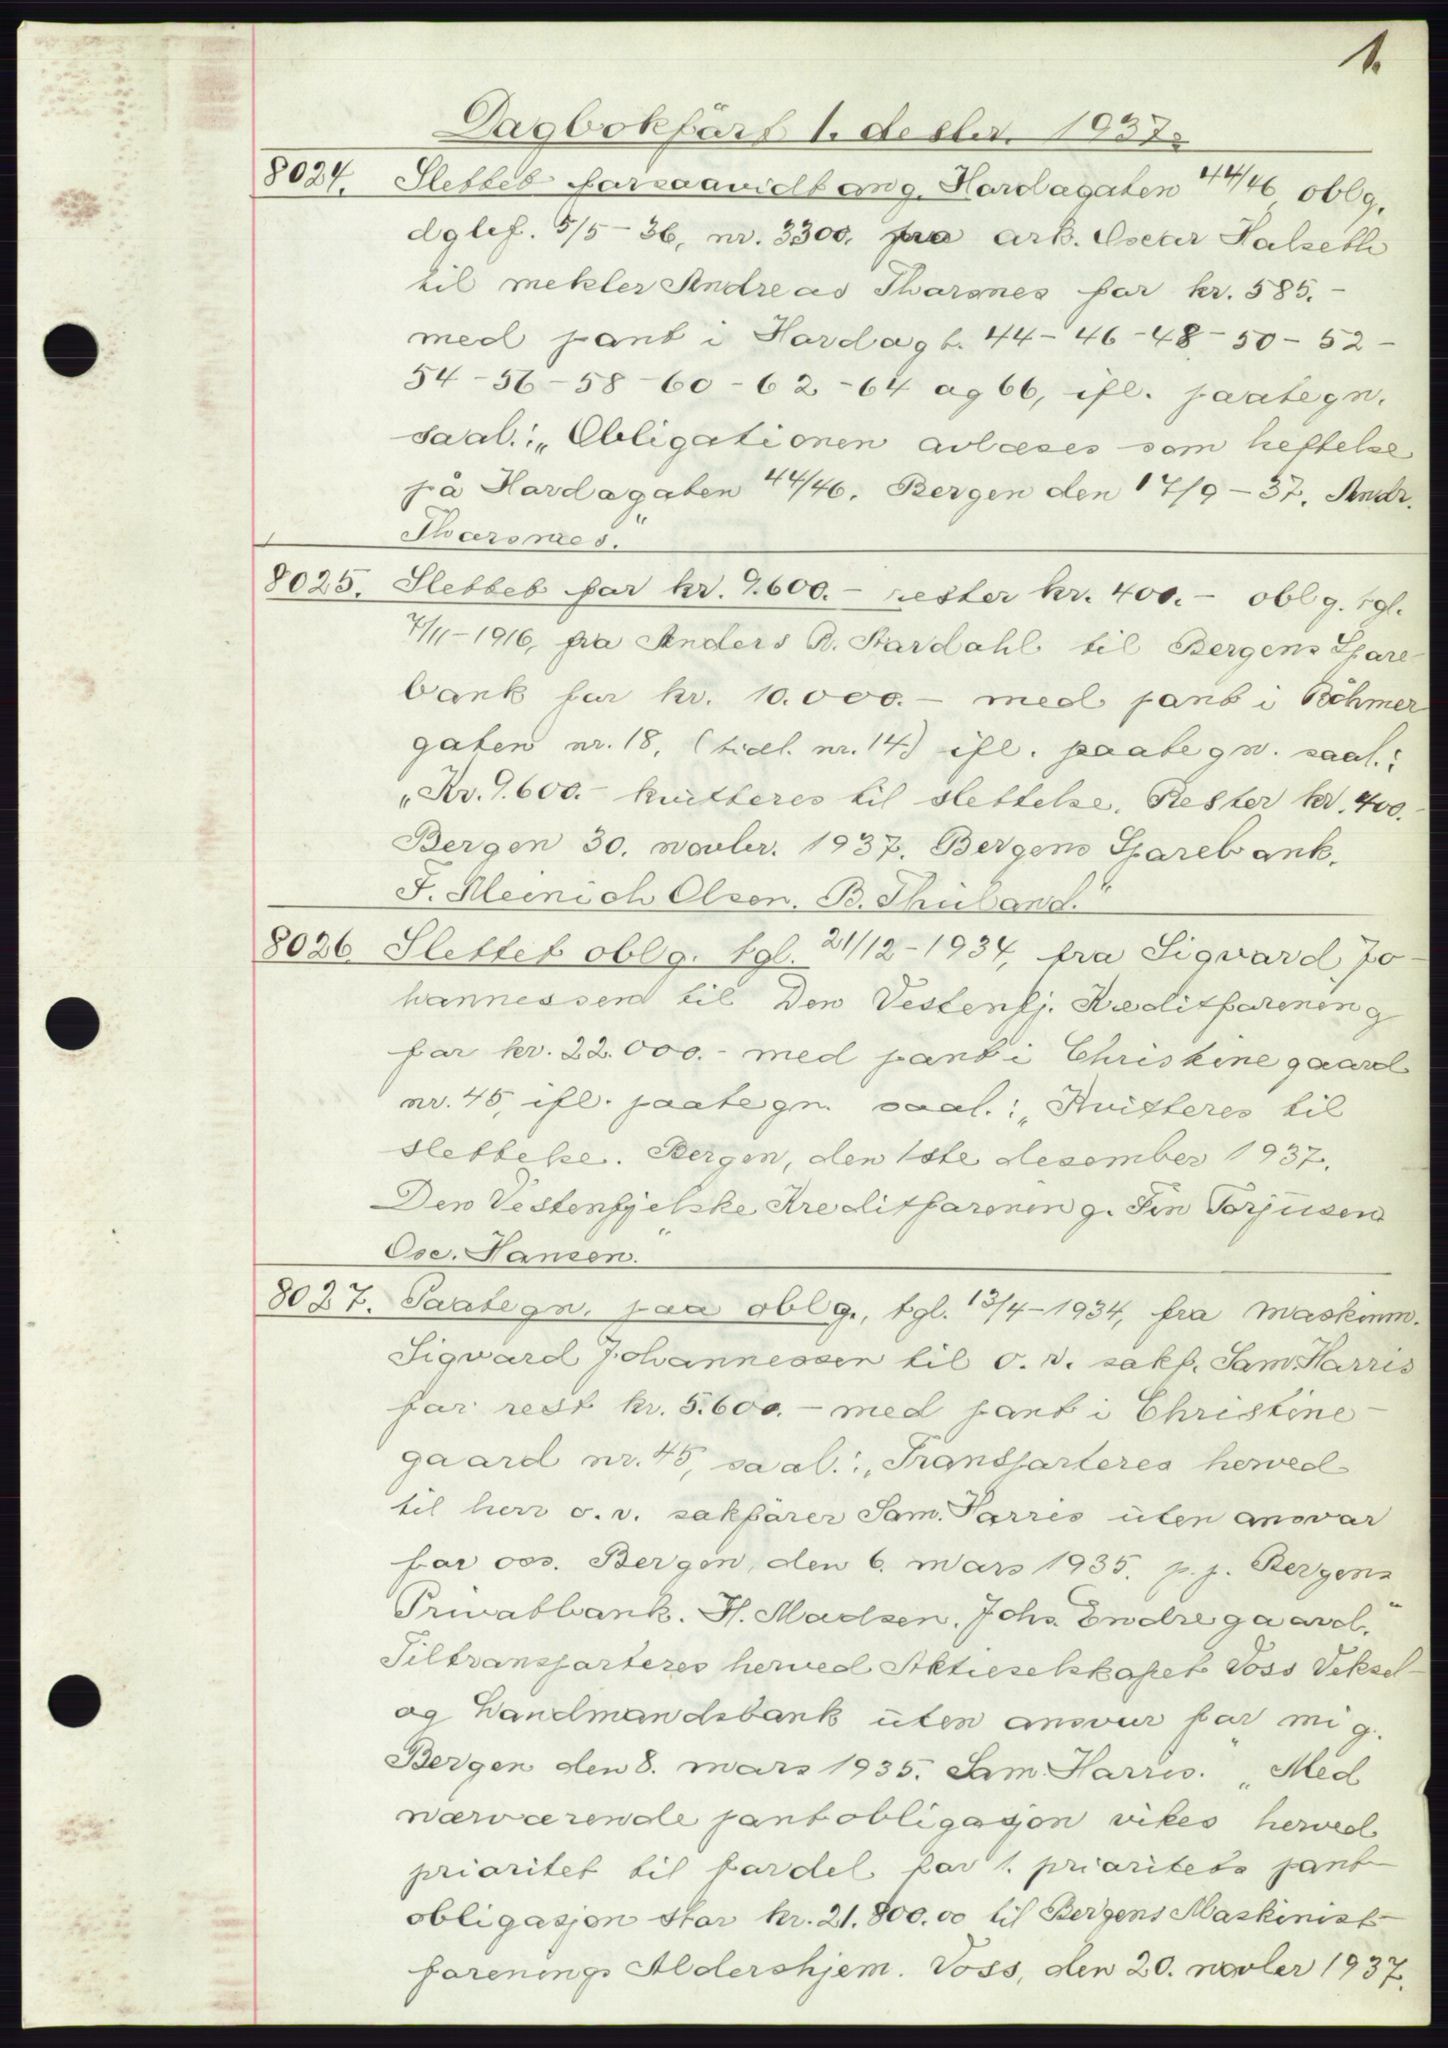 1.
Dagbokført 1. desbr. 1937.
8024. Slettet forsaavidt ang. Hordagaten 44/46, oblg.
dglef. 5/5-36, nr. 3300, fra ark. Oscar Halseth
til mekler Andreas Tharsnes for kr. 585.-
med pant i Hordagt. 44-46-48-50-52-
54-56-58-60-62-64 og 66, ifl. paategn.
saal.: „Obligationen avlæses som heftelse
på Hordagaten 44/46. Bergen den 17/9-37. Andr.
Tharsnes."
8025. Slettet for kr. 9.600.- rester kr. 400.- oblg. tgl.
7/11-1916, fra Anders R. Stardahl til Bergens Spare-
bank for kr. 10.000.- med pant i Bøhmer
gaten nr. 18, (tidl. nr. 14) ifl. paategn. saal.:
„Kr. 9.600.- kvitteres til slettelse. Rester kr. 400.-
Bergen 30. novbr. 1937. Bergens Sparebank.
F. Meinich Olsen. B. Thuland."
8026. Slettet oblg. tgl. 21/12-1934, fra Sigvard Jo-
hannessen til Den Vestenfj. Kreditforening
for kr. 22.000.- med pant i Christinegaard
nr. 45, ifl. paategn. saal.: „Kvitteres til
slettelse. Bergen, den 1ste desember 1937.
Den Vestenfjelske Kreditforening. Fin Torjusen
Osc. Hansen."
8027. Paategn. paa oblg., tgl. 13/4-1934, fra maskinm.
Sigvard Johannessen til o. r. sakf. Sam. Harris
for rest kr. 5.600.- med pant i Christine-
gaard nr. 45, saal.: „Transporteres herved
til herr o. r. sakfører Sam. Harris uten ansvar
for oss. Bergen, den 6. mars 1935. p. p. Bergens
Privatbank. H. Madsen. Johs. Endregaard."
Tiltransporteres herved Aktieselskapet Voss Veksel-
og Landmandsbank uten ansvar for mig.
Bergen den 8. mars 1935. Sam. Harris." „Med
nærværende pantobligasjon vikes herved
prioritet til fordel for 1. prioritets pant-
obligasjon stor kr. 21.800.00 til Bergens Maskinist-
forenings Aldershjem. Voss, den 20. novbr 1937.